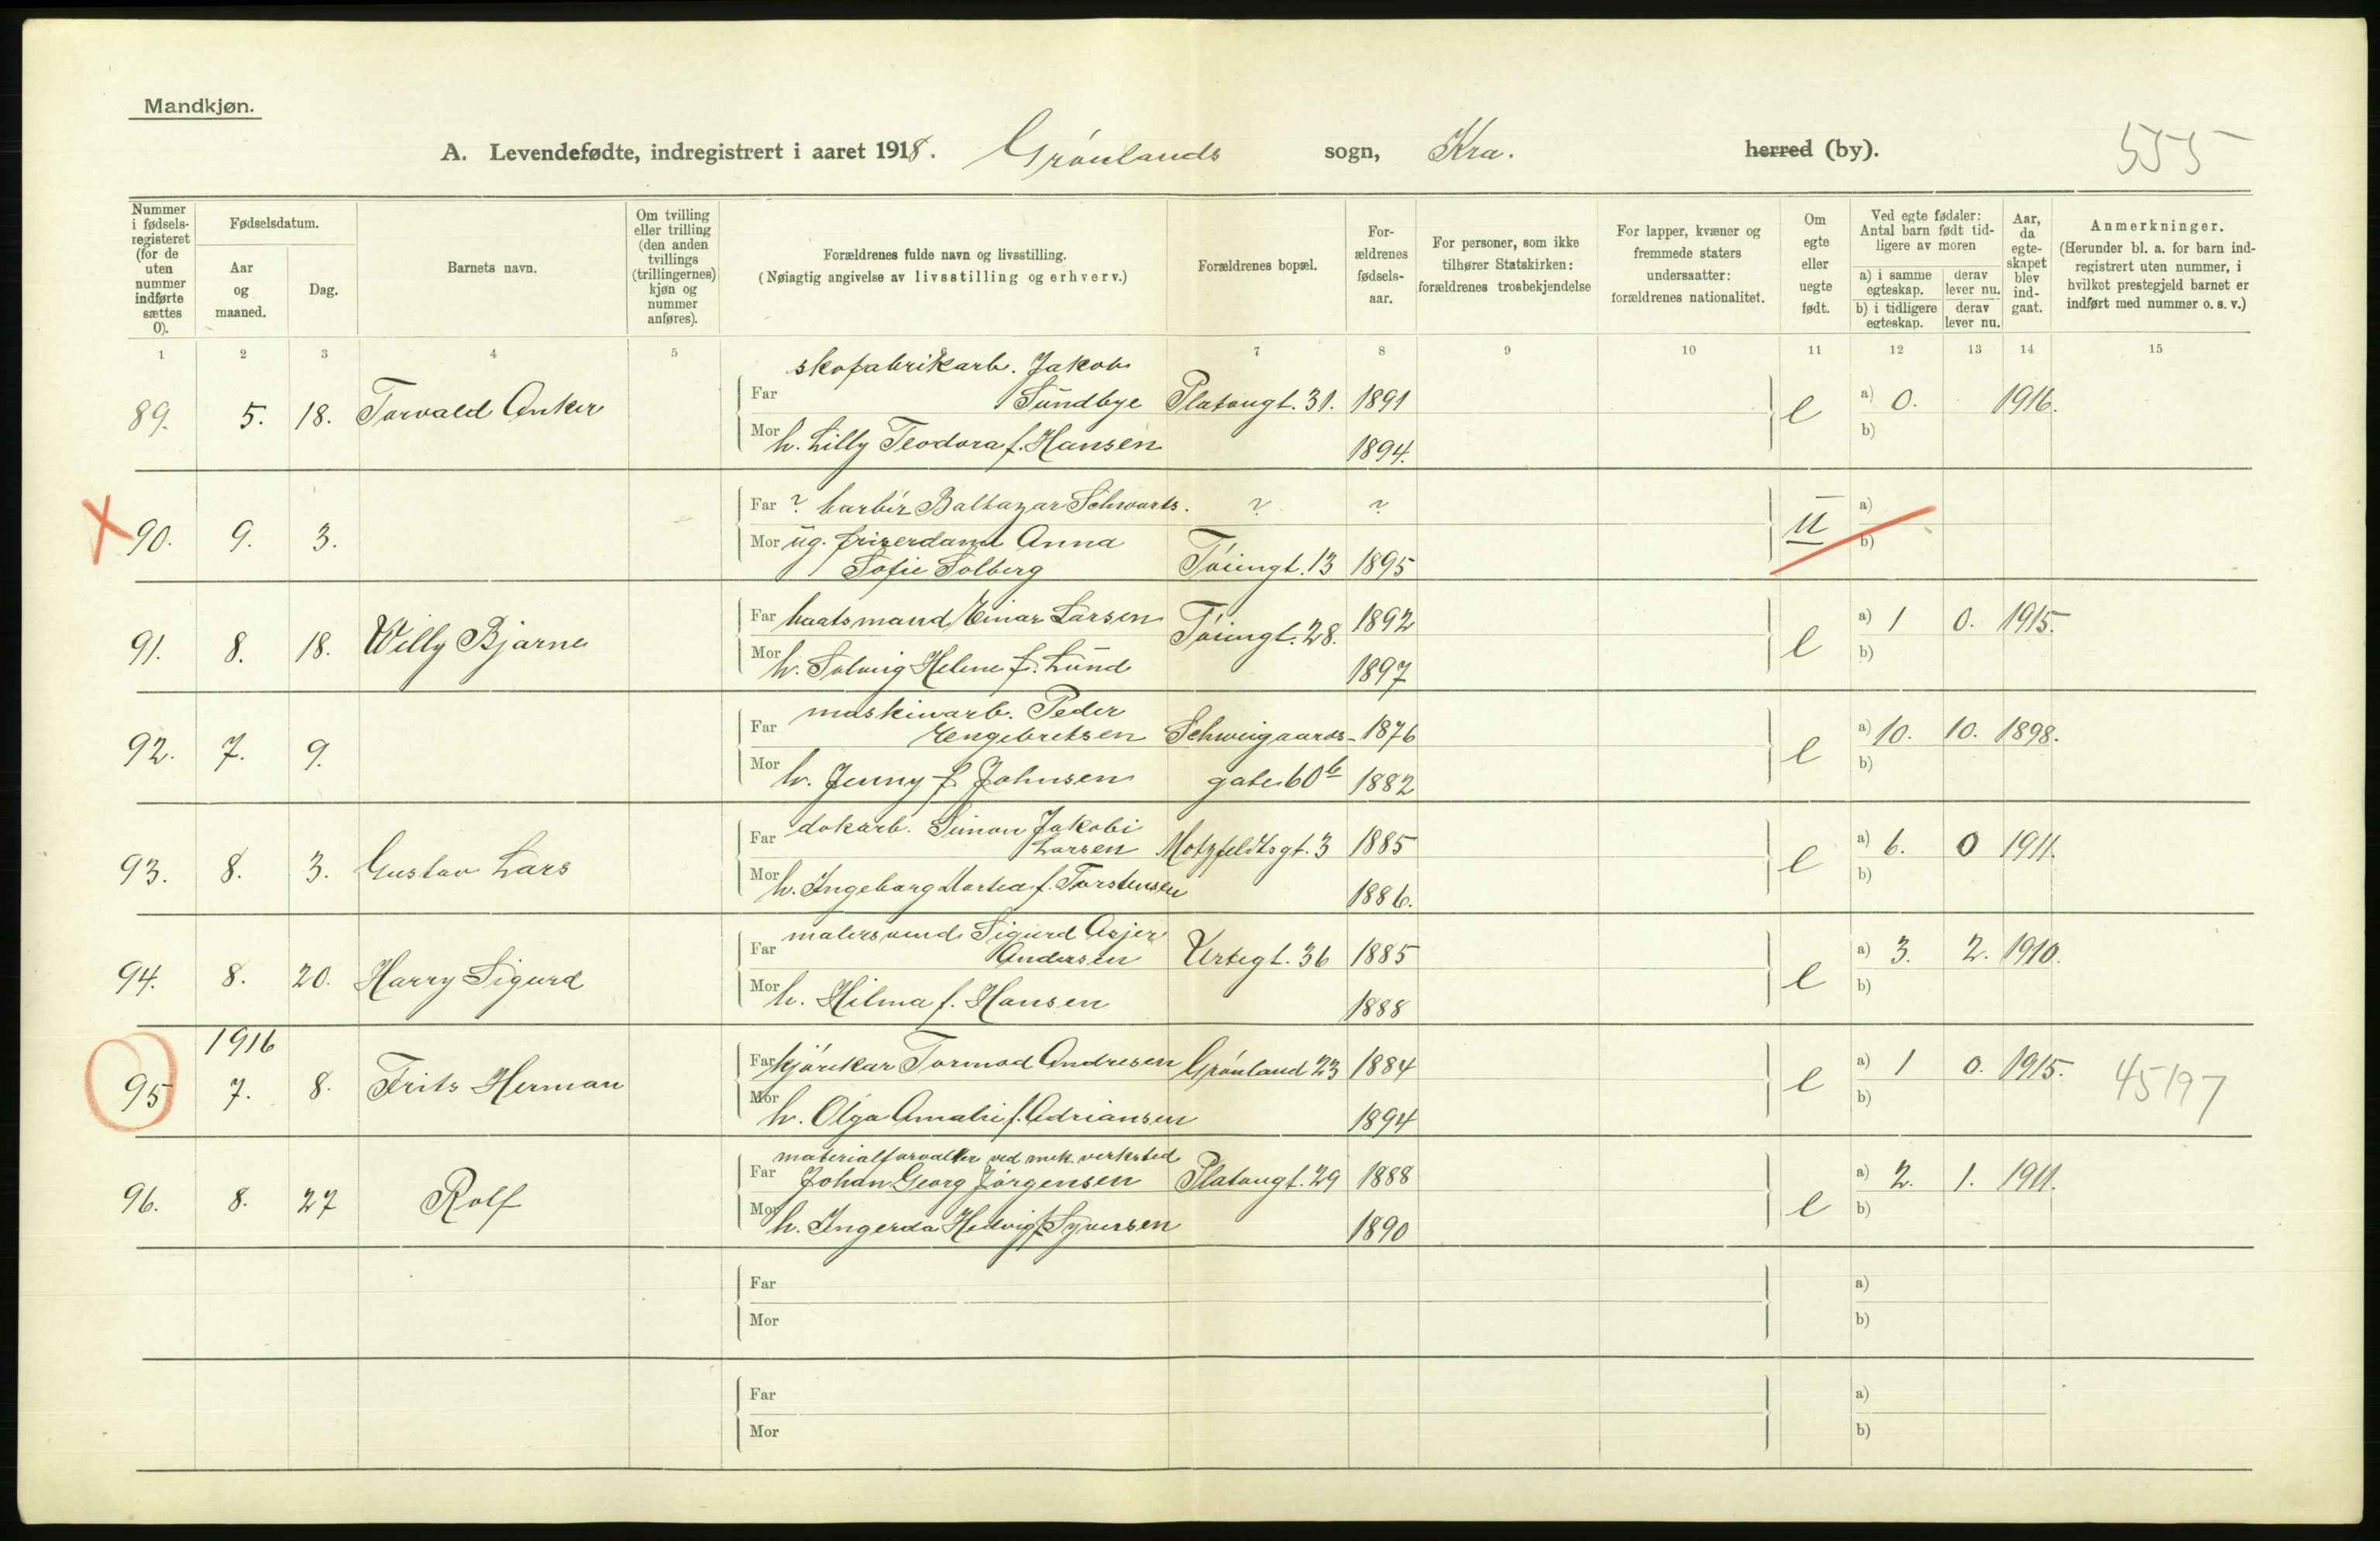 Mandkjøn.
A. Levendefødte, indregistrert i aaret 1918. Grønlands sogn, Kra. herred (by). 555
Nummer i fødsels-registeret (for de uten nummer indførte sættes 0).
Fødselsdatum.
Aar og maaned.
Dag.
Barnets navn.
Om tvilling eller trilling (den anden tvillings (trillingernes) kjøn og nummer anføres).
Forældrenes fulde navn og livsstilling.
(Nøiagtig angivelse av livsstilling og erhverv.)
Forældrenes bopæl.
For-ældrenes fødsels-aar.
For personer, som ikke tilhører Statskirken: forældrenes trosbekjendelse
For lapper, kvæner og fremmede staters undersaatter: forældrenes nationalitet.
Om egte eller uegte født.
Ved egte fødsler: Antal barn født tid-ligere av moren
a) i samme egteskap.
derav lever nu.
b) i tidligere egteskap.
derav lever nu.
Aar, da egte-skapet blev ind-gaat.
Anmerkninger.
(Herunder bl. a. for barn ind-registrert uten nummer, i hvilket prestegjeld barnet er indført med nummer o. s. v.)
1 2 3 4 5 7 8 9 10 11 12 13 14 15
skofabrikarb. Jakob
89. 5. 18. Torvald Anker Far Sundbye Platougt. 31. 1891 e a) 0. 1916.
Mor h. Lilly Teodora f. Hansen 1894. b)
90. 9. 3. Far ? barbér Baltazar Schwarts. ? ? u a)
Mor ug. friserdame Anna b)
Sofie Solberg Tøiengt. 13 1895
91. 8. 18. Willy Bjarne Far baatsmand Einar Larsen Tøiengt. 28. 1892 e a) 1 0. 1915.
Mor h. Solveig Helene f. Lund 1897 b)
maskinarb. Peder
92. 7. 9. Far Engebretsen Schweigaards- 1876 e a) 10. 10. 1898.
Mor h. Jenny f. Johnsen gate 60b 1882 b)
dokarb. Simon Jakobi
93. 8. 3. Gustav Lars Far Larsen Motzfeldtsgt. 3 1885 e a) 6. 0 1911.
Mor h. Ingeborg Martea f. Torstensen 1886. b)
malersvend Sigurd Asjer
94. 8. 20. Harry Sigurd Far Andersen Urtegt. 36 1885 e a) 3. 2. 1910.
Mor h. Hilma f. Hansen 1888 b)
1916
95 7. 8. Frits Herman Far kjørekar Tormod Andresen Grønland 23 1884 e a) 1 0. 1915. 45197
Mor h. Olga Amalie f. Adriansen 1894 b)
materialforvalter ved mek. verksted
96. 8. 27 Rolf Far Johan Georg Jørgensen Platougt. 29 1888 e a) 2. 1. 1911.
Mor h. Ingerda Hedvig f. Syversen 1890 b)
Far a)
Mor b)
Far a)
Mor b)